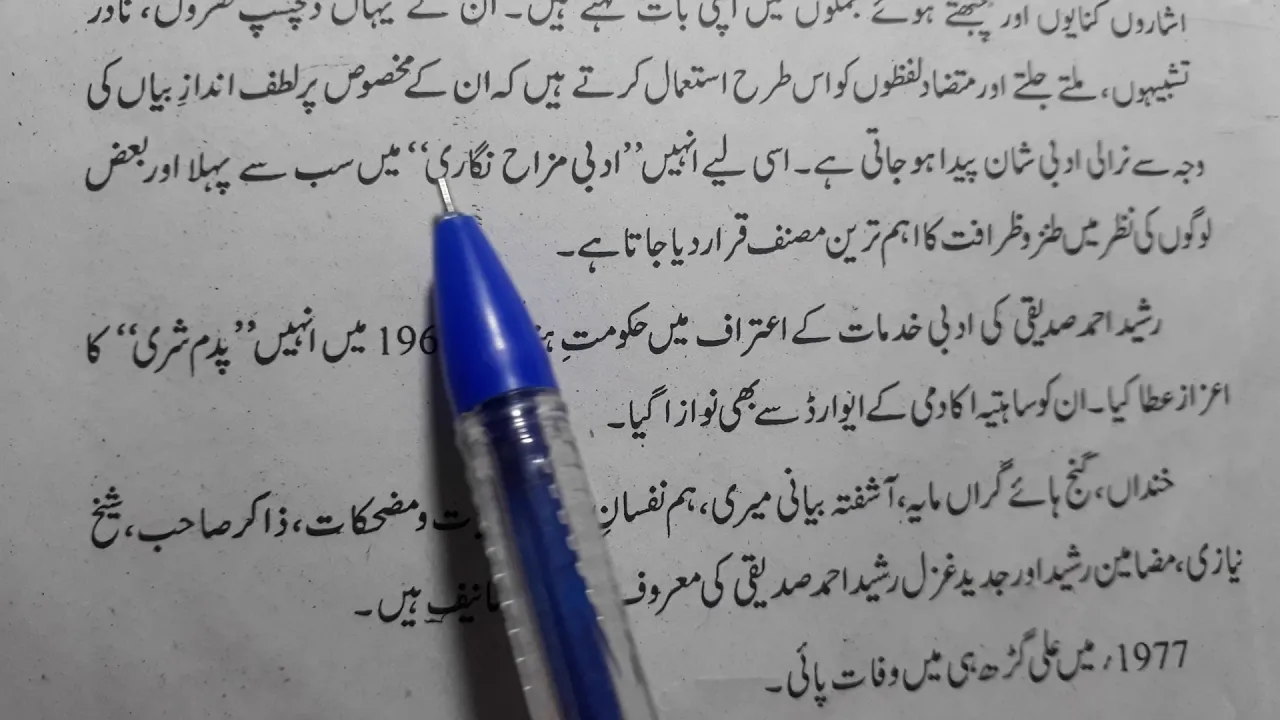 اشاروں کنایوں اور چبھتے ہوئے جملوں میں اپنی بات کہتے ہیں۔ ان کے یہاں دلچسپ فقروں، نادر
تشبیہوں، ملتے جلتے اور متضاد لفظوں کو اس طرح استعمال کرتے ہیں کہ ان کے مخصوص پرلطف اندازِ بیاں کی
وجہ سے نرالی ادبی شان پیدا ہو جاتی ہے۔ اسی لیے انہیں ”ادبی مزاح نگاری“ میں سب سے پہلا اور بعض
لوگوں کی نظر میں طنز و ظرافت کا اہم ترین مصنف قرار دیا جاتا ہے۔
رشید احمد صدیقی کی ادبی خدمات کے اعتراف میں حکومتِ 196 میں انہیں ”پدم شری“ کا
اعزاز عطا کیا۔ ان کو ساہتیہ اکادمی کے ایوارڈ سے بھی نوازا گیا۔
خنداں، گنج ہائے گراں مایہ، آشفتہ بیانی میری، ہم نفسانِ و مضحکات، ذاکر صاحب، شیخ
نیازی، مضامین رشید اور جدید غزل رشید احمد صدیقی کی معروف ہیں۔
1977ء میں علی گڑھ ہی میں وفات پائی۔